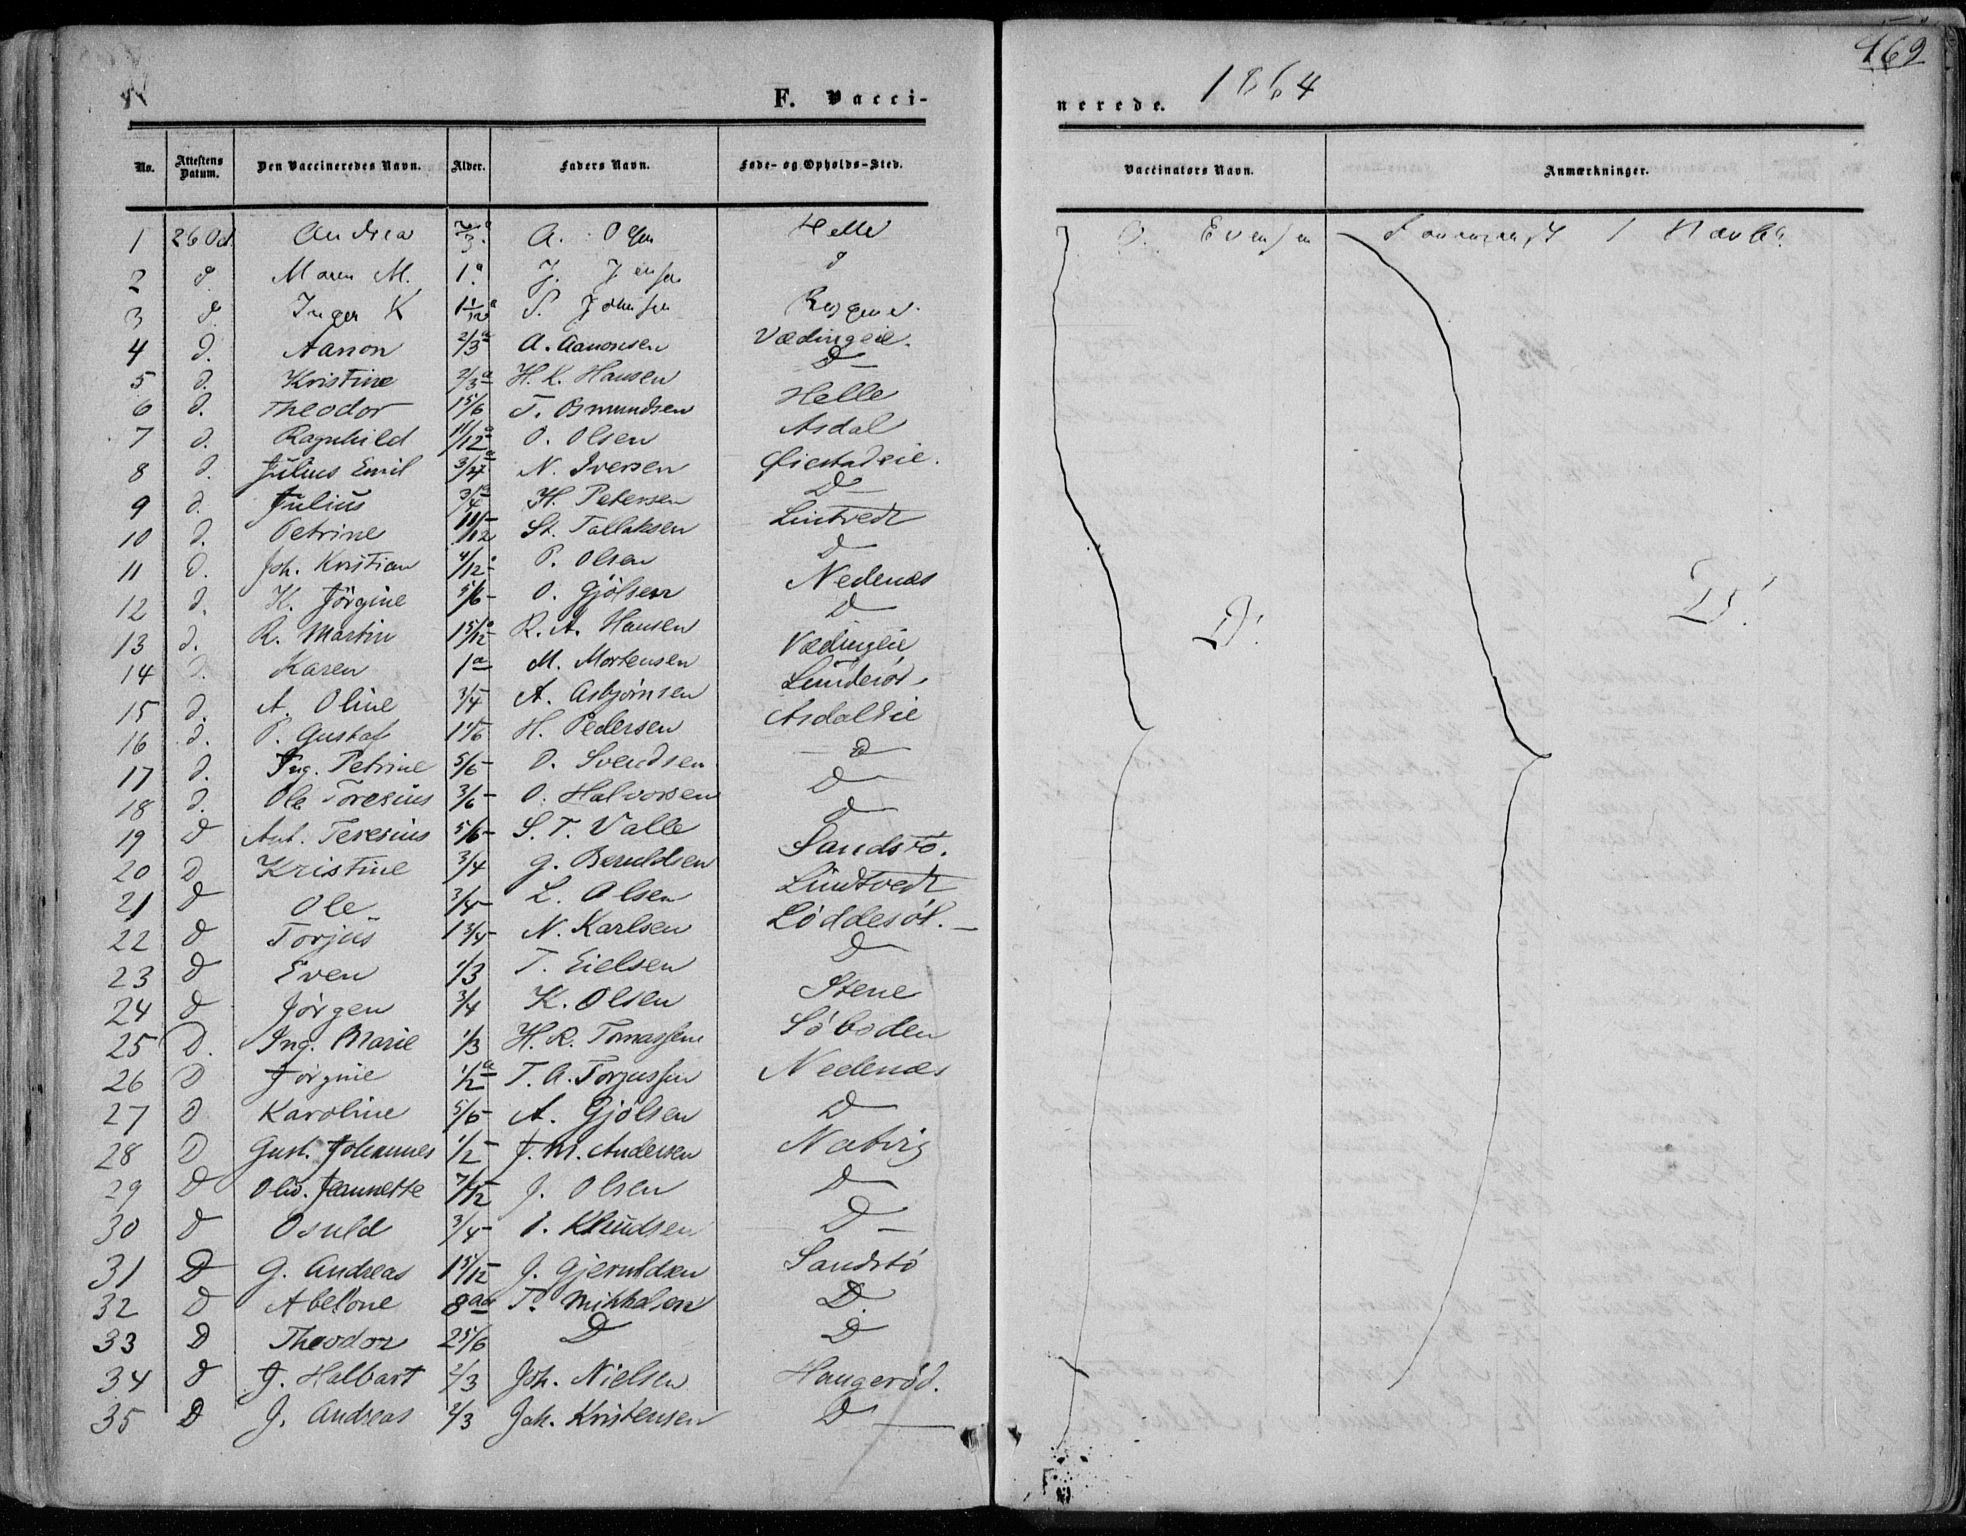 469
F. Vacci-
nerede. 1864
No. Attestens Datum. Den Vaccineredes Navn. Alder. Faders Navn. Føde- og Opholds-Sted. Vaccinators Navn. Anmærkninger.
1 26 Oct Andrea 2/3 a A. Olsen Helle O. Evensen
2 d. Maren M. 1 a J. Jensen d
3 d. Inger K 1 1/12 a P. Johnsen
4 d. Aanon 2/3 a A. Aanonsen Vædingeie.
5 d. Kristine 2/3 a H. K. Hansen D
6 d. Theodor 1 5/6 T. Osmundsen Helle
7 d. Ragnhild 11/12 a O. Olsen Asdal
8 d. Julius Emil N. Iversen Øiestadeie.
9 d. Julius 3/4 a H. Petersen D
10 d. Petrine St. Tallaksen Lintvedt
11 d. Joh. Kristian 4/12 P. Olsen D
12 d. K. Jörgine 5/6 - O. Gjölsen Nedenæs
13 d. R. Martin 1 5/12 a R. A. Hansen D
14 d. Karen 1 a M. Mortensen Vædingeie
15 d. A. Oline 3/4 A. Asbjørnsen
16 d. P. Gustaf H. Pedersen Asdaleie
17 d. Ing. Petrine 5/6 - O. Svendsen D
18 d. Ole Toresius 3/6 - O. Halvorsen D
19 D Ant. Teresius 5/6 - S. T. Valle D
20 D Kristine 3/4 G. Beruldsen Sandstö.
21 D Ole 3/4 - L. Olsen Lindtvedt
22 D Torjus 1 3/4 - N. Karlsen Löddesöl.
23 D Even 1/3 T. Eielsen D
24 D Jörgen 3/4 K. Olsen Stene
25 D. Ing. Marie 1/3 H. R. Tomassen Söboden
26 D Jörgine 1/2 a T. A. Torjussen Nedenæs
27 D Karoline 5/6 - A. Gjölsen D
28 D Gust. Johannes 1/2 - J. M. Andersen Natvig
29 D Oliv. Jeannette 7/12 - J. Olsen D
30 D Osuld 3/4 - Knudsen D -
31 D G. Andreas 1 5/12 J. Gjeruldsen Sandstö
32 D Abelone 8 aar T. Mikkelsen D.
33 D Theodor 2 5/6 D D
34 D J. Halbart 2/3 Joh. Nielsen Haugeröd.
35 D J. Andreas 2/3 Joh. Kristensen D
D.
D.